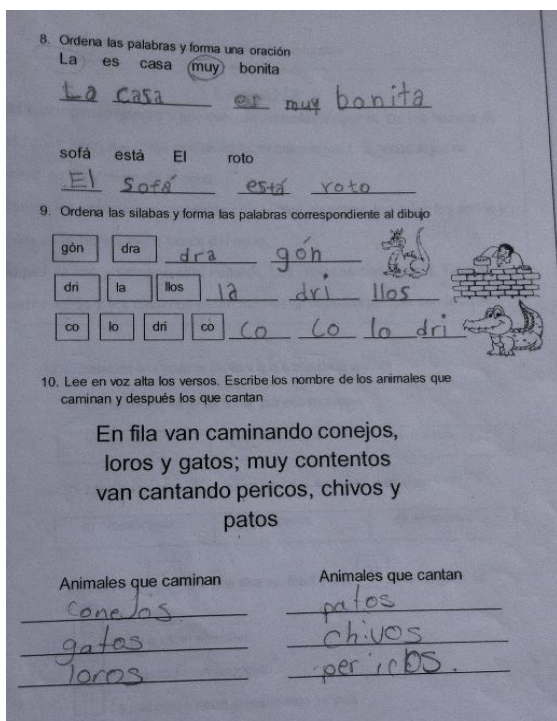 8. Ordena las palabras y forma una oración
La es casa muy bonita
La casa es muy bonita
sofá está El roto
El sofá está roto
9. Ordena las silabas y forma las palabras correspondiente al dibujo
gón dra dra gón
dri la llos la dri llos
co lo dri co co co lo dri
10. Lee en voz alta los versos. Escribe los nombre de los animales que
caminan y después los que cantan
En fila van caminando conejos,
loros y gatos; muy contentos
van cantando pericos, chivos y
patos
Animales que caminan Animales que cantan
conejos patos
gatos chivos
loros pericos.